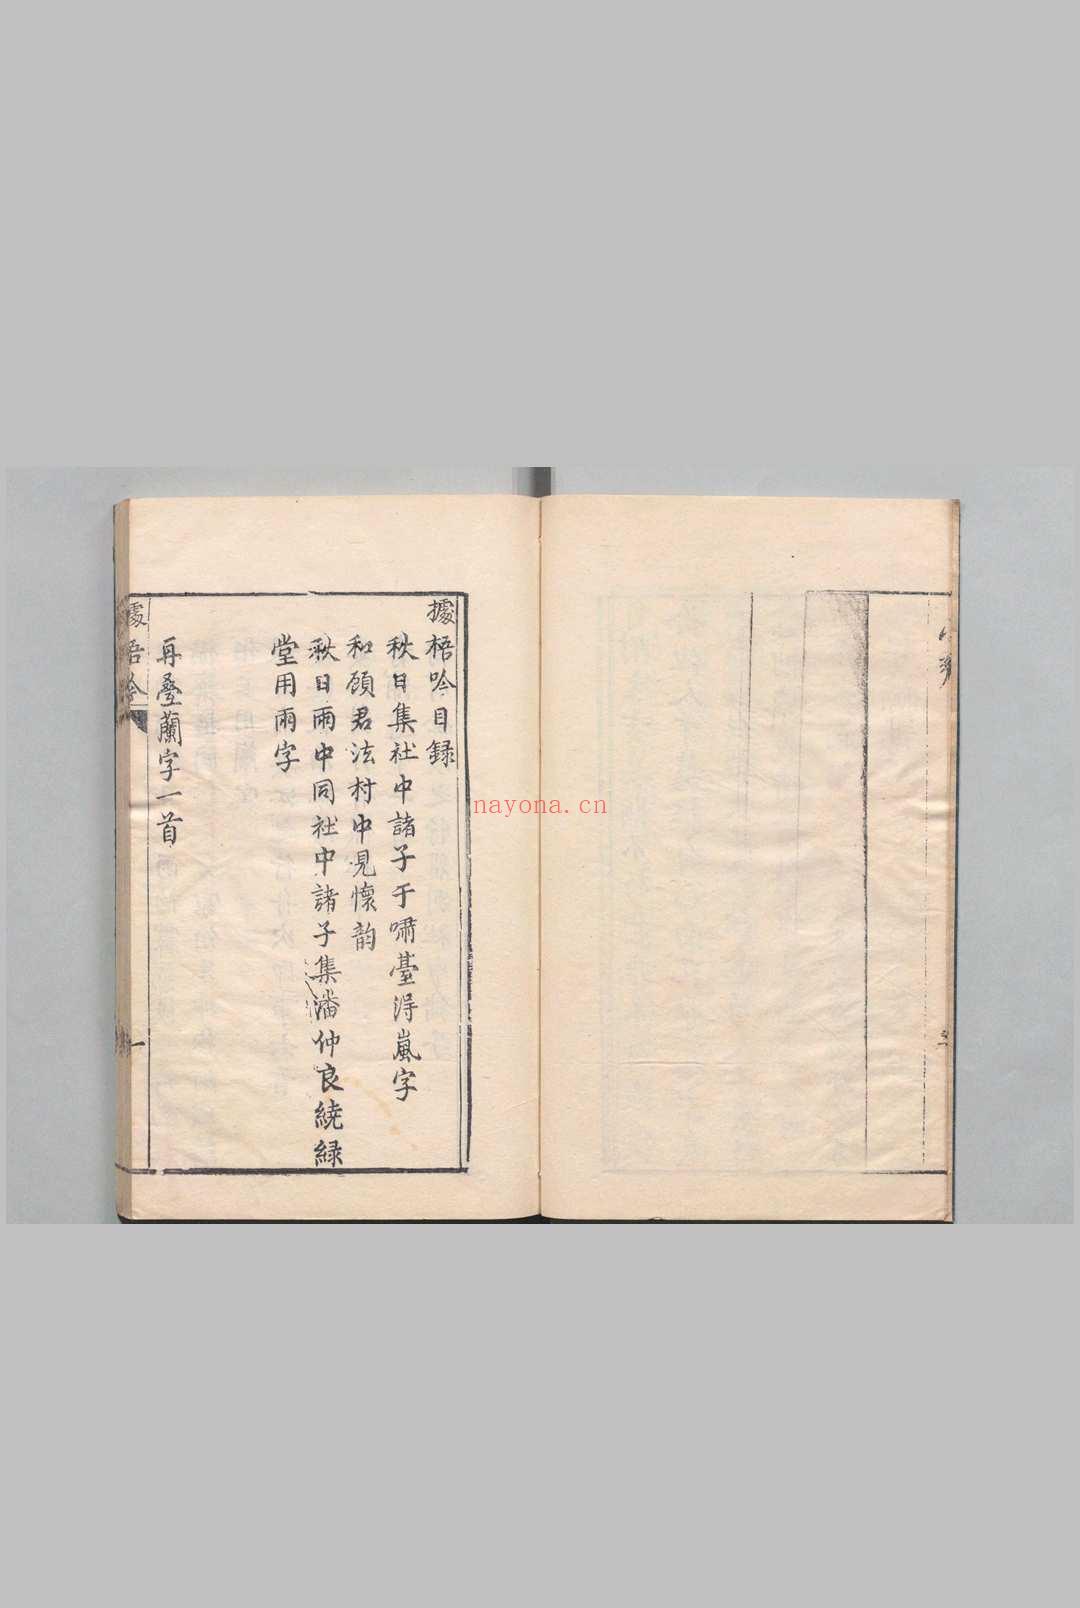 據梧吟目録
秋日集社中諸子于嘯臺得嵐字
和顧君法村中見懷韵
秋日雨中同社中諸子集潘仲良繞緑
堂用雨字
再疊蘭字一首
據梧吟
一
nayona.cn